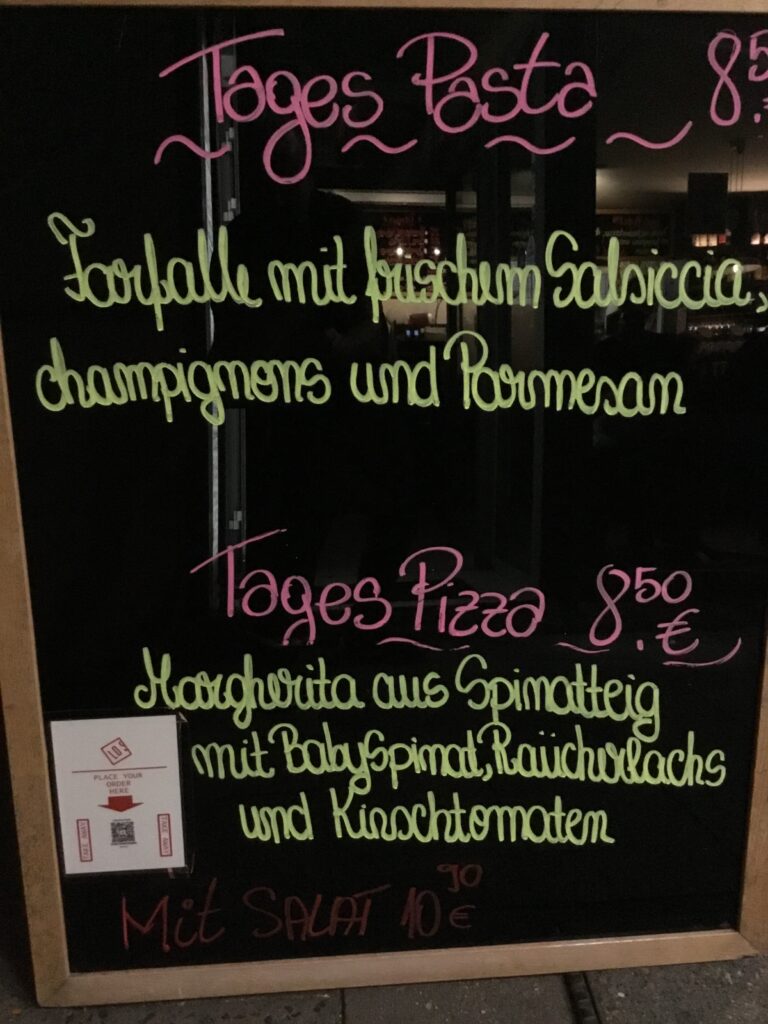 Tages Pasta 8.50
Farfalle mit frischem Salsiccia,
champignons und Parmesan
Tages Pizza 8.50 €
Margherita aus Spinatteig
mit BabySpinat, Raücherlachs
und Kirschtomaten
PLACE YOUR
ORDER
HERE
TAKE AWAY
Mit SALAT 10 90 €